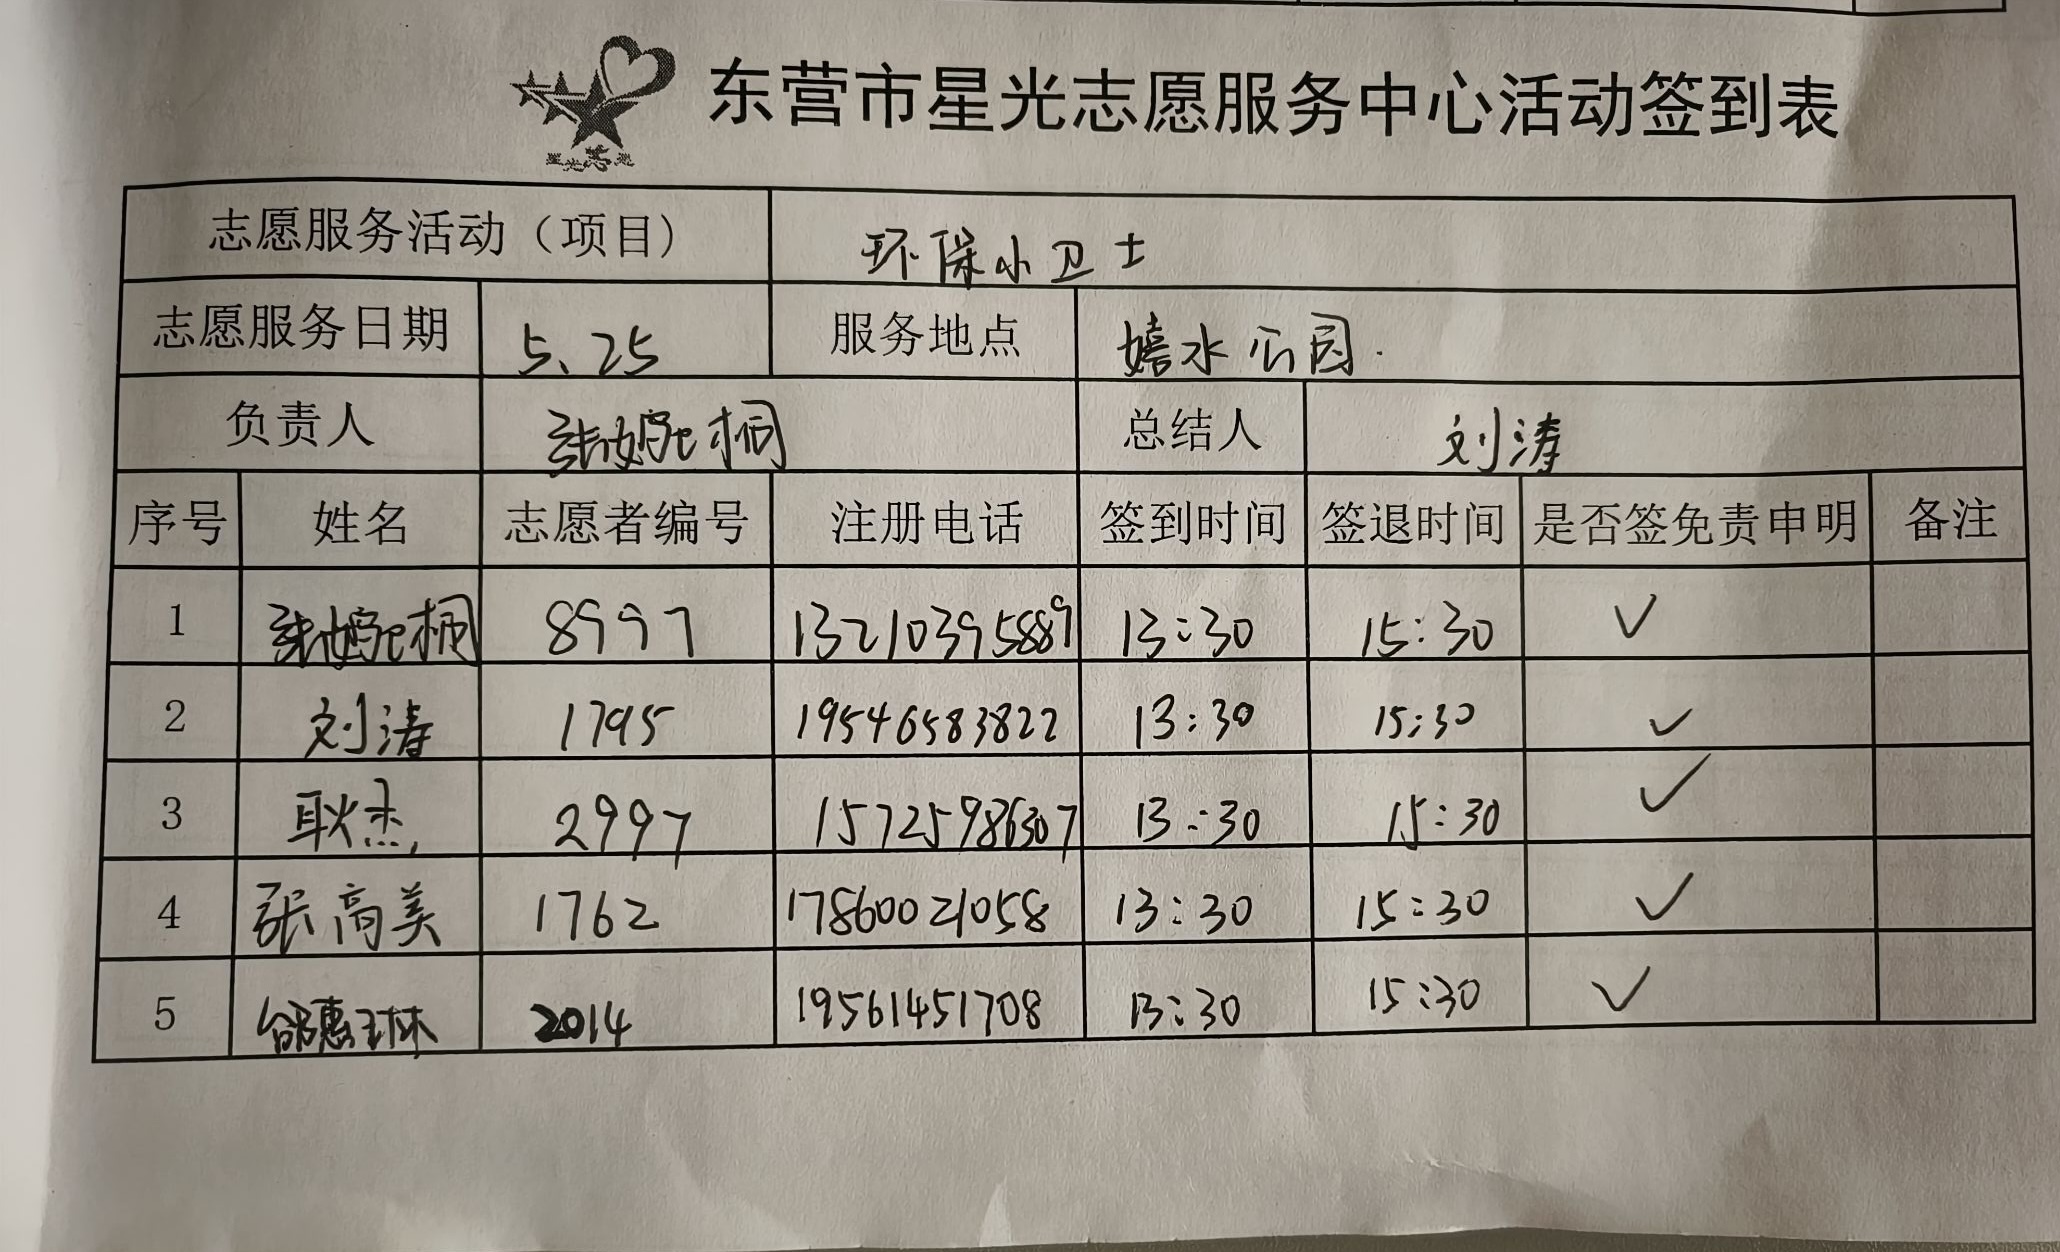 星光志愿
东营市星光志愿服务中心活动签到表
志愿服务活动（项目） 环保小卫士
志愿服务日期 5、25 服务地点 嬉水公园.
负责人 张婉桐 总结人 刘涛
序号 姓名 志愿者编号 注册电话 签到时间 签退时间 是否签免责申明 备注
1 张婉桐 8997 13210395889 13:30 15:30 ✓
2 刘涛 1795 19546583822 13:30 15:30 ✓
3 耿杰 2997 15725986307 13:30 15:30 ✓
4 张高美 1762 17860021058 13:30 15:30 ✓
5 惠琳 2014 19561451708 13:30 15:30 ✓